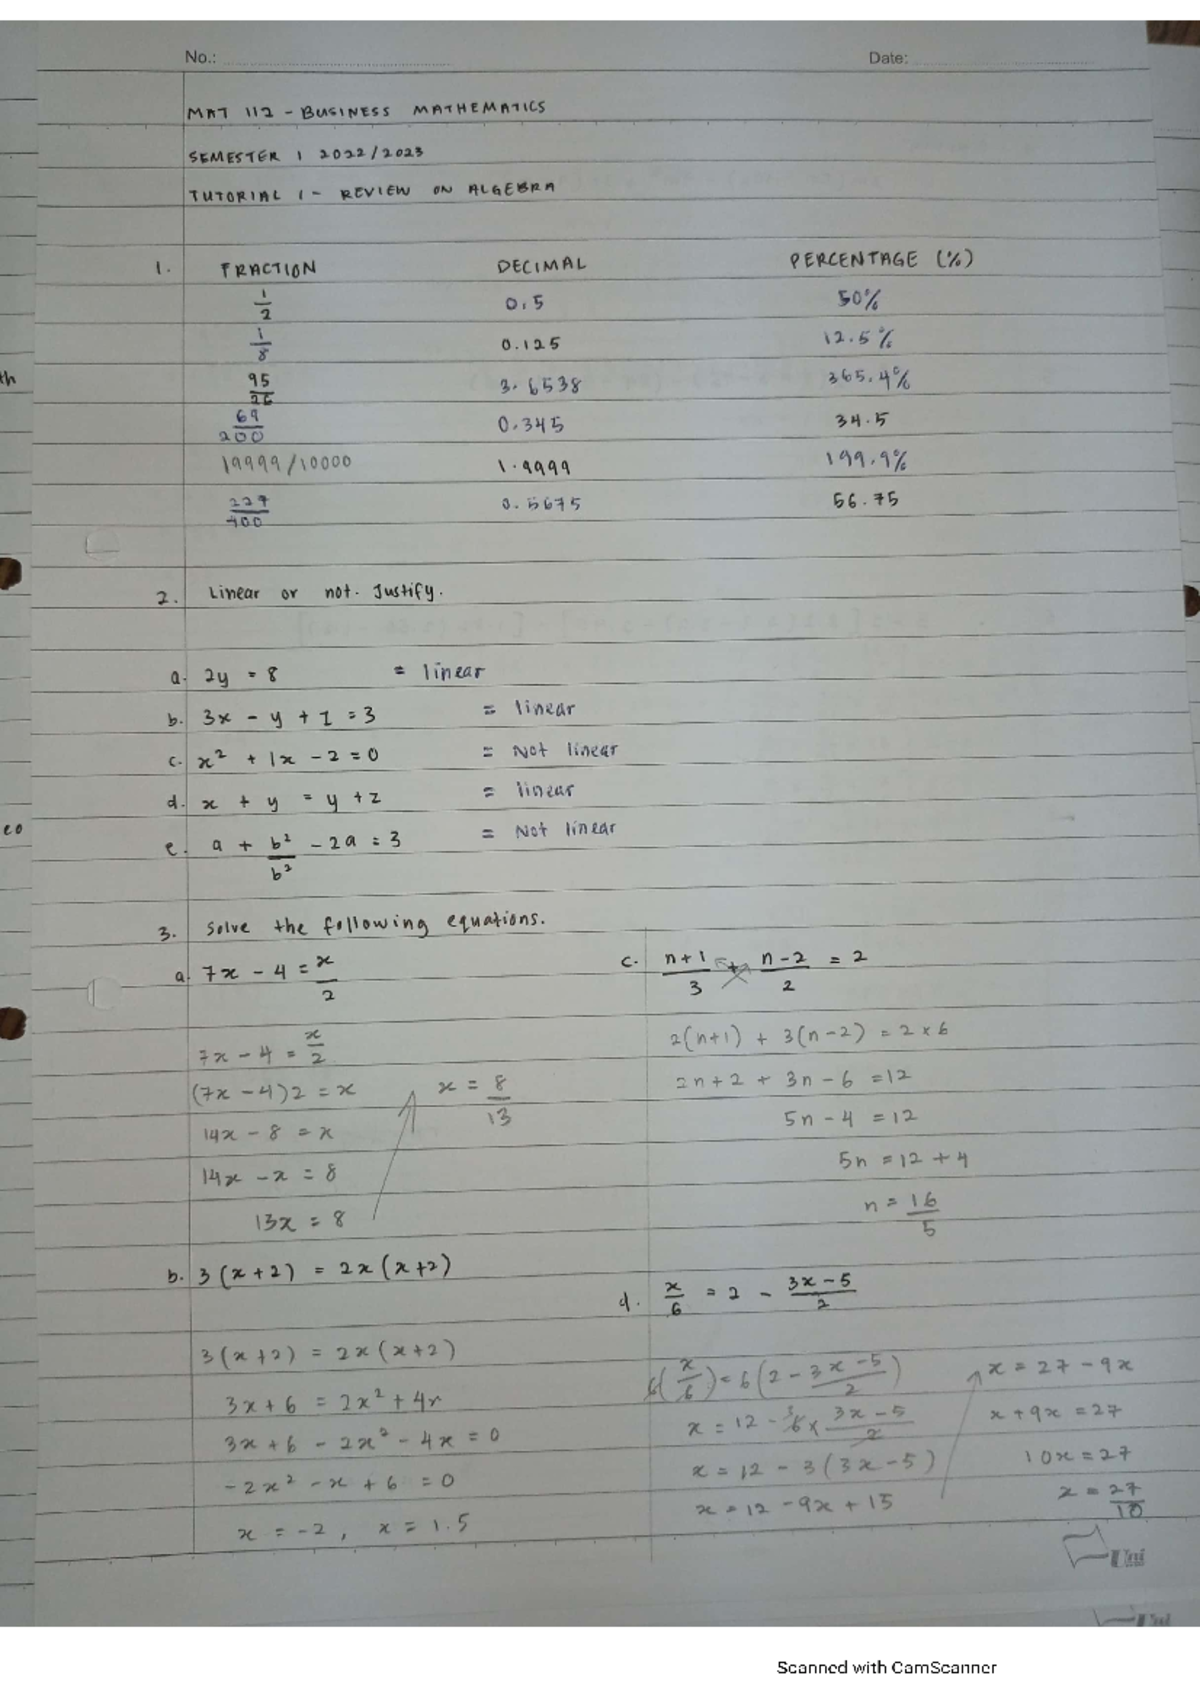 No.: Date:
MAT 112 - BUSINESS MATHEMATICS
SEMESTER 1 2022/2023
TUTORIAL 1 - REVIEW ON ALGEBRA
1. FRACTION DECIMAL PERCENTAGE (%)
1/2 0.5 50%
1/8 0.125 12.5%
95/26 3.6538 365.4%
69/200 0.345 34.5
19999/10000 1.9999 199.9%
227/400 0.5675 56.75
2. Linear or not. Justify.
a. 2y = 8 = linear
b. 3x - y + 1 = 3 = linear
c. x² + 1x - 2 = 0 = Not linear
d. x + y = y + z = linear
e. a + b²/b² - 2a = 3 = Not linear
3. Solve the following equations.
a. 7x - 4 = x/2
7x - 4 = x/2
(7x - 4)2 = x
14x - 8 = x
14x - x = 8
13x = 8
x = 8/13
b. 3(x+2) = 2x(x+2)
3(x+2) = 2x(x+2)
3x + 6 = 2x² + 4x
3x + 6 - 2x² - 4x = 0
-2x² - x + 6 = 0
x = -2, x = 1.5
c. n+1/3 + n-2/2 = 2
2(n+1) + 3(n-2) = 2×6
2n+2 + 3n-6 = 12
5n - 4 = 12
5n = 12 + 4
n = 16/5
d. x/6 = 2 - 3x-5/2
6(x/6) = 6(2 - 3x-5/2)
x = 12 - 6³ × 3x-5/2
x = 12 - 3(3x-5)
x = 12 - 9x + 15
x = 27 - 9x
x + 9x = 27
10x = 27
x = 27/10
Uni
th
eo
Scanned with CamScanner